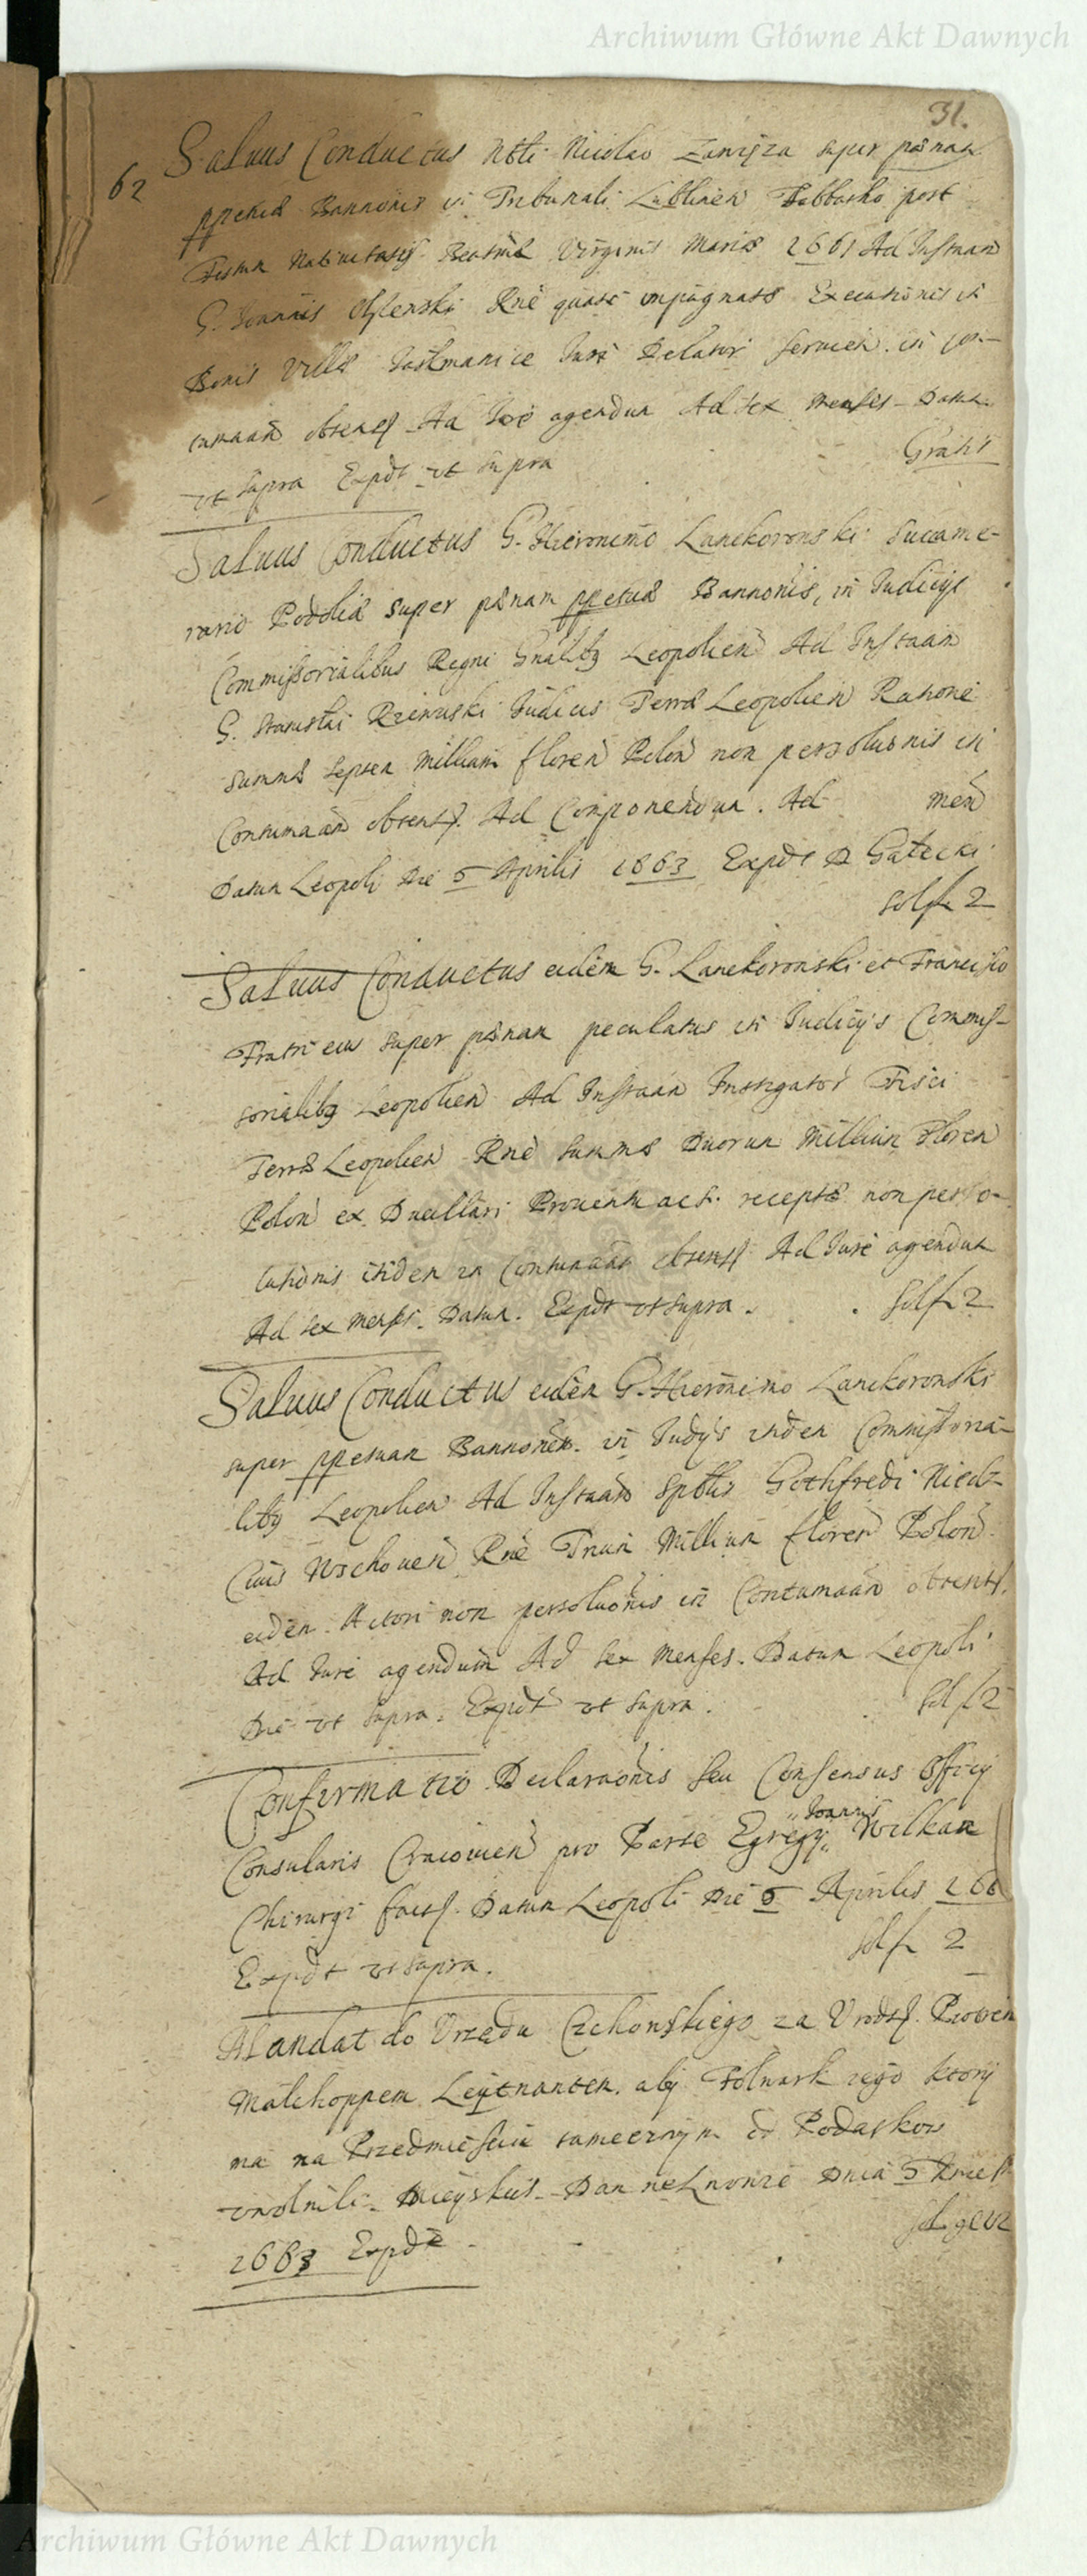 Archiwum Główne Akt Dawnych
31.
62
Saluus Conductus Nbli Nicolao Zawisza super pœnam
ppetuæ Bannonis in Tribunali Lublinen Sabbatho post
Festum Natiuitatis Beatmæ Virginis Mariæ 1661 Ad Instaan
G. Joannis Rne quasi impugnatæ Executionis in
Bonis Villæ Jure Delatori seruien. in con-
tumaan obtent. Ad Jure agendum Ad sex menses Datum
vt supra Expdt vt supra
Gratis
Saluus Conductus G. Hieronimo Lanckoronski Succame-
rario Podoliæ super pœnam ppetuæ Bannonis, in Judicijs
Commissorialibus Regni Gnalibq Leopolien Ad Instaan
G. Stanislai Rzewuski Judicis Terræ Leopolien Ratione
summæ septem millium floren Polon non persolu͞onis in
Contumaan obtent. Ad Componendum. Ad men
Datum Leopoli die 5 Aprilis 1663 Expdt D Gałecki
sol f 2
Saluus Conductus eidem G. Lanckoronski et Francisco
Fratri eius super pœnam peculatus in Judicijs Commis-
sorialibq Leopolien Ad Instaan Instigator Fisci
Terræ Leopolien Rne summæ Duorum Millium Floren
Polon ex Ducillari Prouentu receptæ non persol-
lutionis itidem in Contumaan obtent Ad Jure agendum
Ad sex menses. Datum. Expdt vt supra.
Sol f 2
Saluus Conductus eidem G. Hieronimo Lanckoronski
super ppetuam Bannonem in Judijs itidem Commissoria-
libq Leopolien Ad Instaan Spblis Gothfredi Niedz
Ciuis Wschouen Rne Trium Millium floren Polon
eidem Actori non persoluonis in Contumaan obtent.
Ad Jure agendum Ad sex menses. Datum Leopoli
Die vt supra. Expdt vt supra.
Sol f 2
Confirmatio Declaraonis seu Consensus Officij
Consularis Cracouien pro Parte Egregij Joannis Wilkan
Chirurgi fact. Datum Leopoli Die 5 Aprilis 166
Expdt vt supra.
Sol f 2
Mandat do Vrzędu Czchowskiego za Vrodz.
Malchoppem Leytnantem. aby Folwark iego ktory
ma na Przedmiesciu tamecznym od Podatkow
vwolnili Mieyskich. Dan we Lwowie Dnia 5 Kwiet
1663 Expdt
Archiwum Główne Akt Dawnych